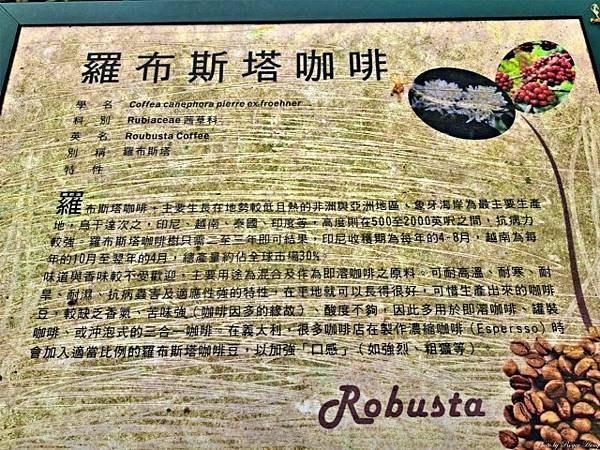 羅布斯塔咖啡
學 名 Coffea canephora pierre ex.froehner
科 別 Rubiaceae 茜草科
英 名 Roubusta Coffee
別 稱 羅布斯塔
特 性
羅布斯塔咖啡，主要生長在地勢較低且熱的非洲與亞洲地區、象牙海岸為最主要生產
地，烏干達次之，印尼、越南、泰國、印度等，高度則在500至2000英呎之間，抗病力
較強。羅布斯塔咖啡樹只需二至三年即可結果，印尼收穫期為每年的4-8月，越南為每
年的10月至翌年的4月，總產量約佔全球市場30%。
味道與香味較不受歡迎，主要用途為混合及作為即溶咖啡之原料。可耐高溫、耐寒、耐
旱、耐濕、抗病蟲害及適應性強的特性，在平地就可以長得很好，可惜生產出來的咖啡
豆，較缺乏香氣、苦味強（咖啡因多的緣故）、酸度不夠，因此多用於即溶咖啡、罐裝
咖啡、或沖泡式的三合一咖啡。在義大利，很多咖啡店在製作濃縮咖啡（Espersso）時
會加入適當比例的羅布斯塔咖啡豆，以加強「口感」（如強烈、粗獷等）。
Robusta